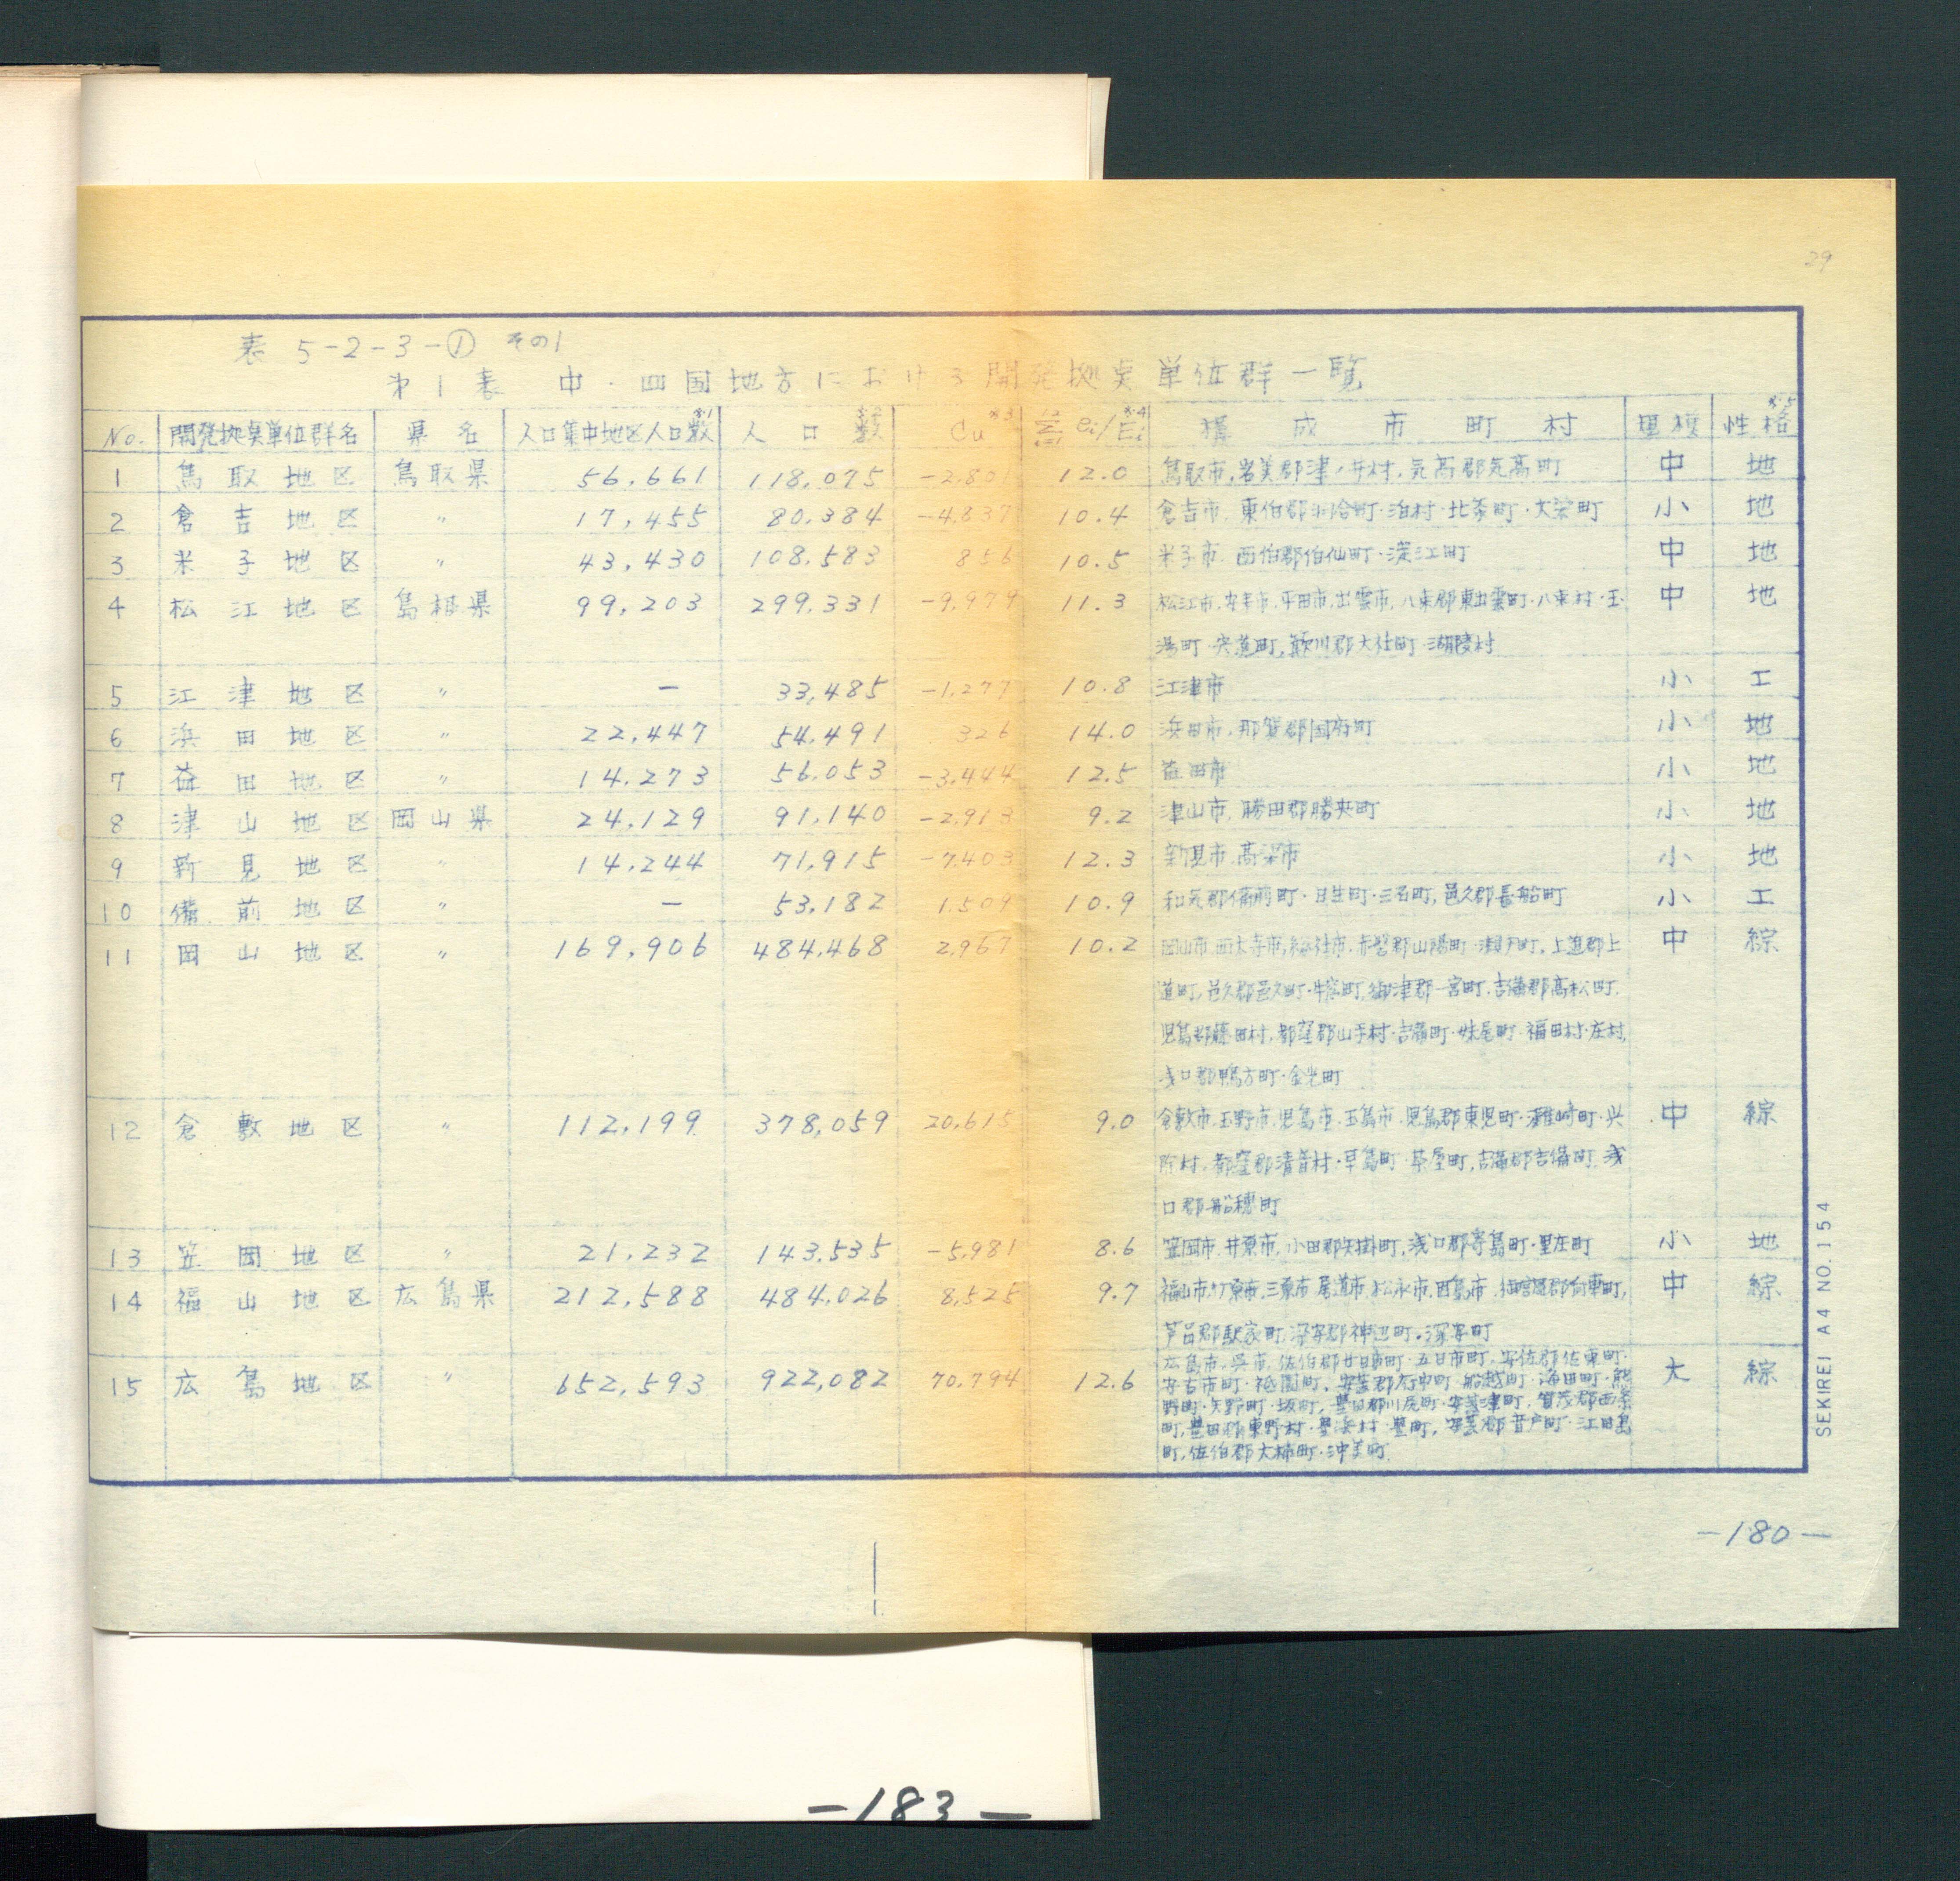 29
表 5-2-3-① その1
第1表 中・四国地方における開発拠点単位群一覧
No. 開発拠点単位群名 県名 人口集中地区人口数※1 人口数 Cu※3 ei/Ei※4 構成市町村 規模 性格※5
1 鳥取地区 鳥取県 56,661 118,075 -2,801 12.0 鳥取市,岩美郡津ノ井村,気高郡気高町 中 地
2 倉吉地区 〃 17,455 80,384 -4,837 10.4 倉吉市,東伯郡羽合町・泊村・北条町・大栄町 小 地
3 米子地区 〃 43,430 108,583 856 10.5 米子市,西伯郡伯仙町・淀江町 中 地
4 松江地区 島根県 99,203 299,331 -9,979 11.3 松江市,安来市,平田市,出雲市,八束郡東出雲町・八束村・玉 中 地
湯町・宍道町,簸川郡大社町・湖陵村
5 江津地区 〃 — 33,485 -1,277 10.8 江津市 小 工
6 浜田地区 〃 22,447 54,491 326 14.0 浜田市,那賀郡国府町 小 地
7 益田地区 〃 14,273 56,053 -3,444 12.5 益田市 小 地
8 津山地区 岡山県 24,129 91,140 -2,913 9.2 津山市,勝田郡勝央町 小 地
9 新見地区 〃 14,244 71,915 -7,403 12.3 新見市,高梁市 小 地
10 備前地区 〃 — 53,182 1,509 10.9 和気郡備前町・日生町・三石町,邑久郡長船町 小 工
11 岡山地区 〃 169,906 484,468 2,967 10.2 岡山市,西大寺市,総社市,赤磐郡山陽町・瀬戸町,上道郡上 中 綜
道町,邑久郡邑久町・牛窓町,御津郡一宮町,吉備郡高松町,
児島郡藤田村,都窪郡山手村・吉備町・妹尾町・福田村・庄村,
浅口郡鴨方町・金光町
12 倉敷地区 〃 112,199 378,059 20,615 9.0 倉敷市,玉野市,児島市,玉島市,児島郡東児町・灘崎町・興 中 綜
除村,都窪郡清音村・早島町・茶屋町,吉備郡吉備町,浅
口郡船穂町
13 笠岡地区 〃 21,232 143,535 -5,981 8.6 笠岡市,井原市,小田郡矢掛町,浅口郡寄島町・里庄町 小 地
14 福山地区 広島県 212,588 484,026 8,525 9.7 福山市,竹原市,三原市,尾道市,松永市,因島市,御調郡向東町, 中 綜
芦品郡駅家町,深安郡神辺町・深安町
15 広島地区 〃 652,593 922,082 70,794 12.6 広島市,呉市,佐伯郡廿日市町・五日市町,安佐郡佐東町・ 大 綜
安古市町・祇園町,安芸郡府中町・船越町・海田町・熊
野町・矢野町・坂町,豊田郡川尻町・安芸津町,賀茂郡西条
町,豊田郡東野村・豊浜村・豊町,安芸郡音戸町・江田島
町,佐伯郡大柿町・沖美町
SEKIREI A4 NO.154
—180—
—183—